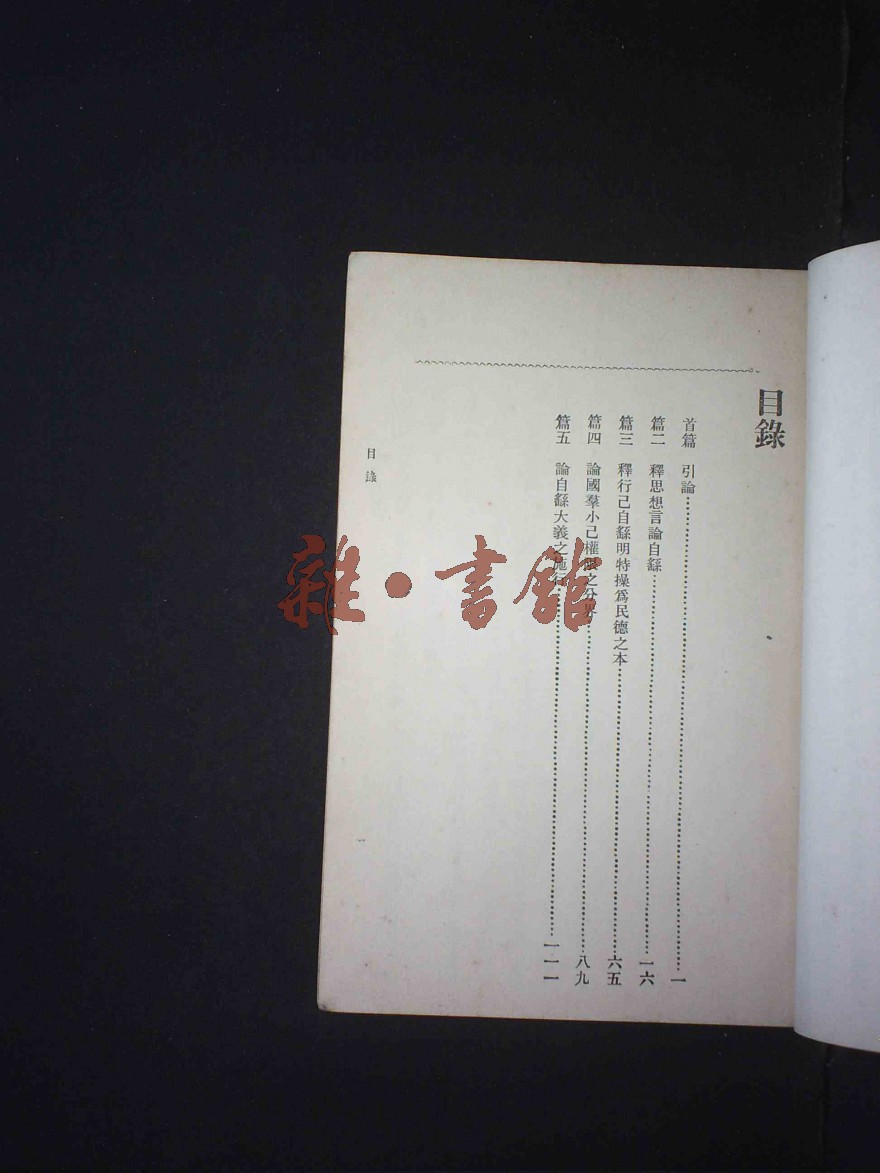 目錄
首篇 引論⋯⋯⋯⋯⋯⋯⋯⋯⋯⋯⋯⋯一
篇二 釋思想言論自繇⋯⋯⋯⋯⋯⋯⋯⋯⋯⋯⋯⋯一六
篇三 釋行己自繇明特操爲民德之本⋯⋯⋯⋯⋯⋯⋯⋯⋯⋯六五
篇四 論國羣小己權限之分界⋯⋯⋯⋯⋯⋯⋯⋯⋯⋯⋯⋯八九
篇五 論自繇大義之施行⋯⋯⋯⋯⋯⋯⋯⋯⋯⋯⋯⋯一一一
目錄
雜·書館